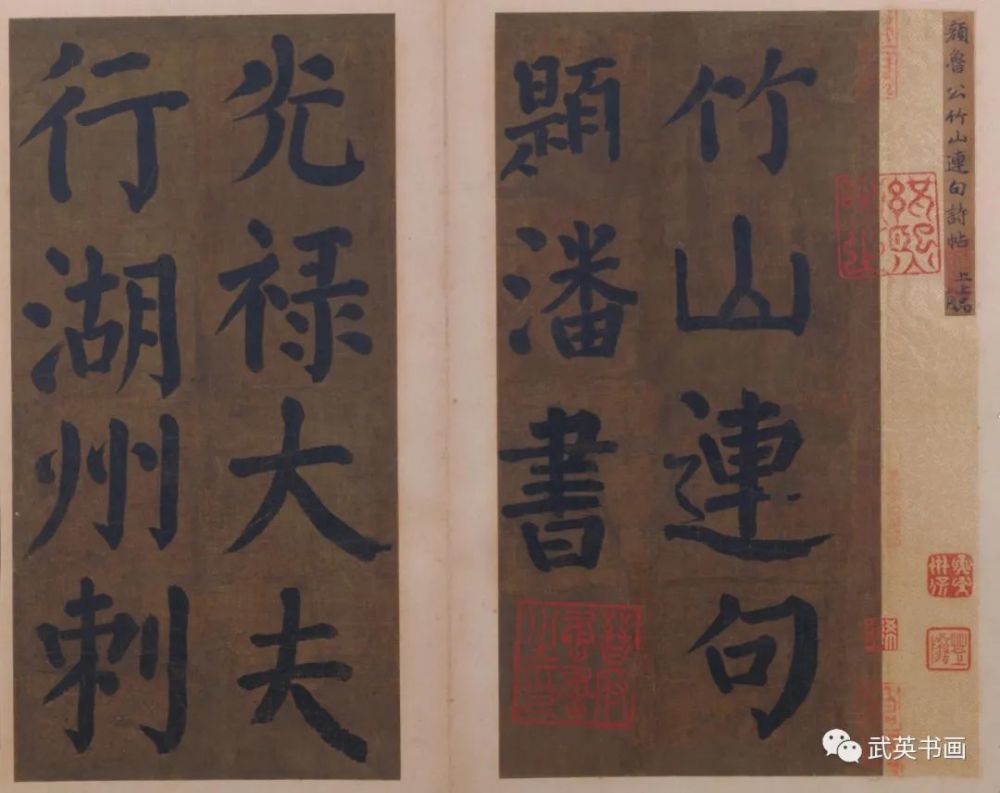 顔魯公竹山連句詩帖
上上品
竹山連句
題潘書
光禄大夫
行湖州刺
武英书画